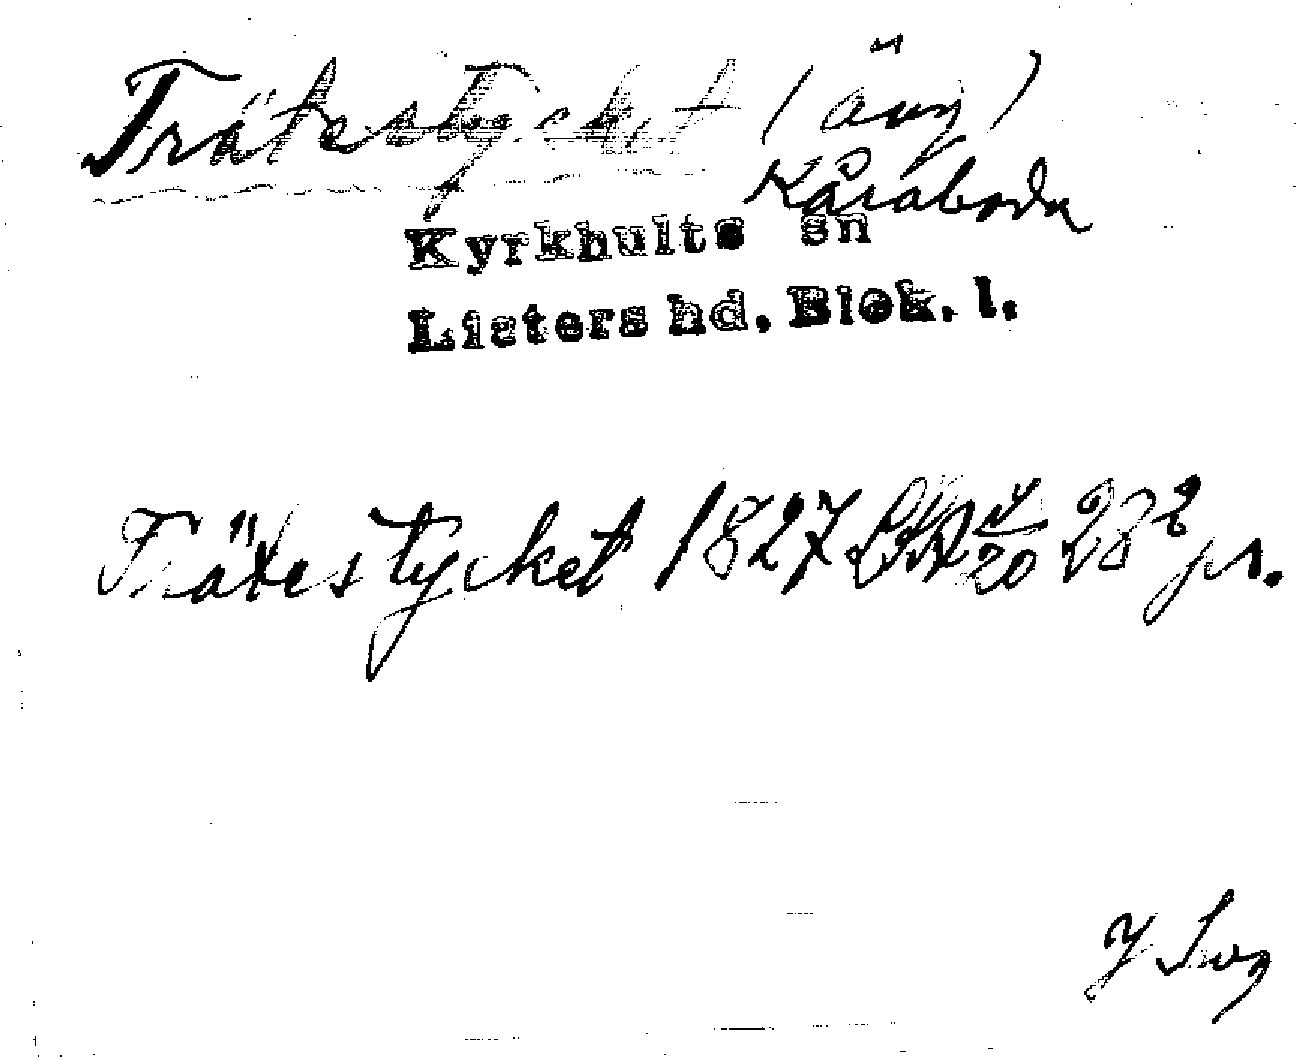 Trätestycket (äng)
Kåraboda
Kyrkhults sn
Listers hd. Blek. l.
Trätestycket 1827 LSA 4/20 28² pr.
J Svg